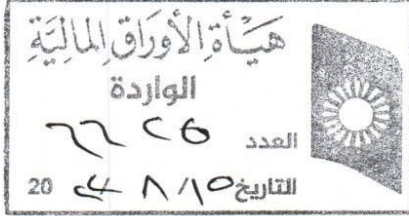 هَيْأَةِ الأَوْرَاقِ المَالِيَّةِ
الواردة
العدد
التاريخ ١٥/ ٨ / ٢٤ 20